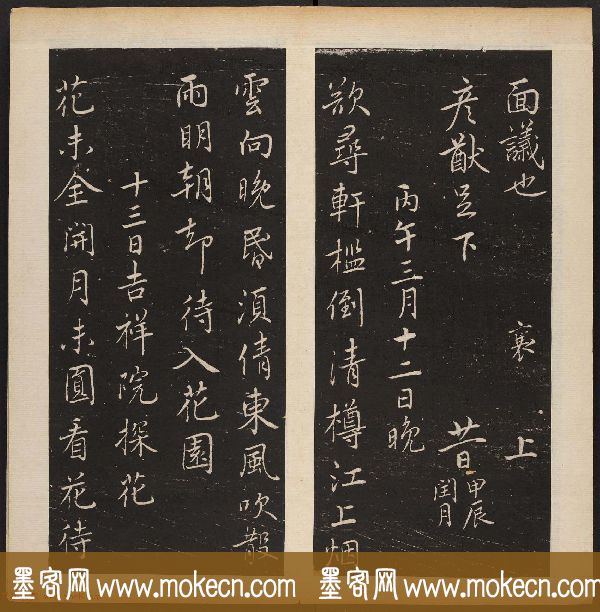 面議也 襄 上
彦猷足下 廿一日甲辰閏月
丙午三月十二日晚
欲尋軒檻倒清樽江上烟
雲向晚昏須倩東風吹散
雨明朝却待入花園
十三日吉祥院探花
花未全開月未圓看花待
墨客网 www.mokecn.com 墨客网 www.mokecn.com